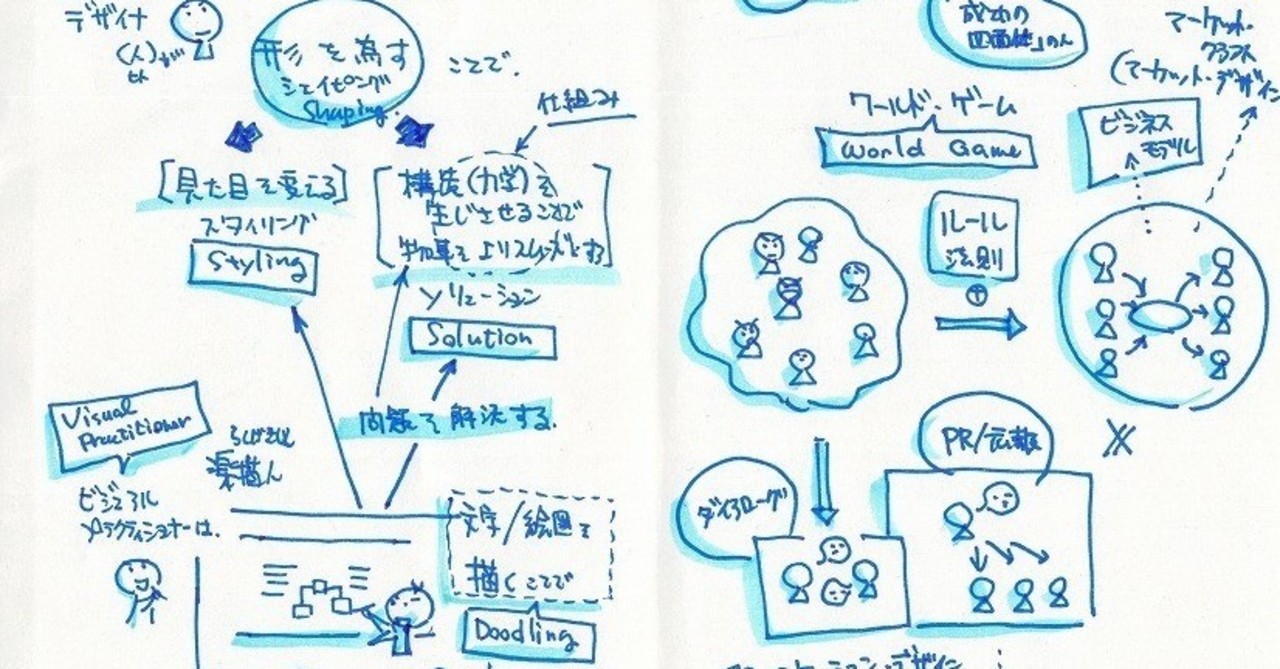 デザイナ
(人)が
形を為す
シェイピング
Shaping.
ことで.
仕組み
[見た目を変える]
スタイリング
Styling
構造(力学)を
生じさせることで
物事をよりスムーズにする
ソリューション
Solution
問題を解決する.
Visual
Practitioner
ビジュアル
プラクティショナーは.
文字/絵図を
描くことで
Doodling
成功の
四面体」のん
マーケット・
クラフト
(マーケット・デザイン
ワールド・ゲーム
World Game
ビジネス
モデル
ルール
法則
PR/広報
ダイアローグ